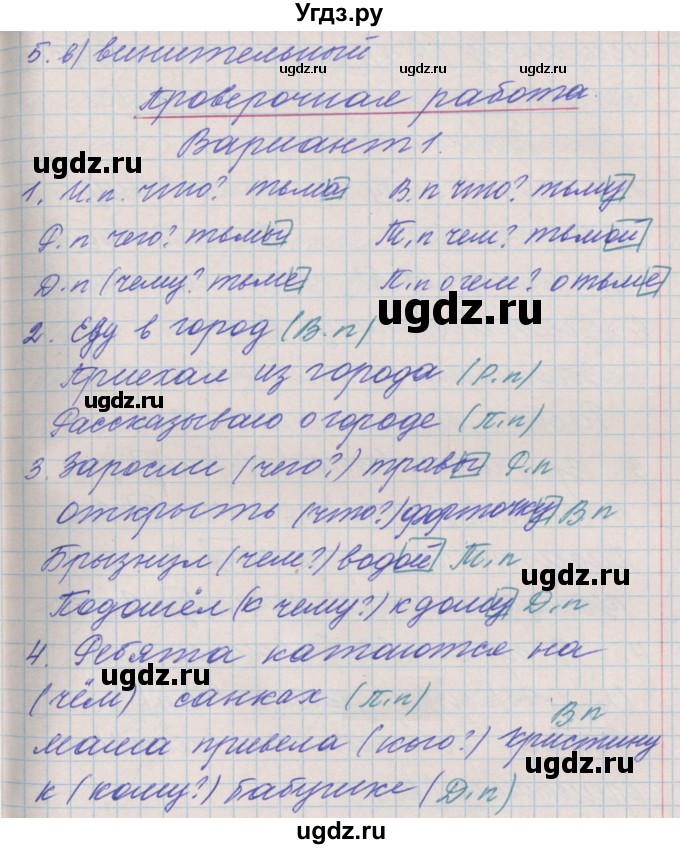 Угдз.ру
5. в) винительный
ugdz.ru ugdz.ru
Проверочная работа.
Вариант 1.
ugdz.ru
1. И.п. что? тьма В.п что? тьму
ugdz.ru
Р.п чего? тьмы Т.п чем? тьмой
ugdz.ru ugdz.ru
Д.п (чему? тьме П.п о чем? о тьме
ugdz.ru
2. Еду в город (В.п)
Приехал из города (Р.п)
ugdz.ru
Рассказываю о городе (П.п)
3. Заросли (чего?) травы Р.п
ugdz.ru ugdz.ru
открыть (что?) форточку В п
Брызнул (чем?) водой Т.п
ugdz.ru
Подошёл (к чему?) к дому Д.п
ugdz.ru
4. Ребята катаются на
ugdz.ru
(чём) санках (П.п)
В п
маша привела (кого?) Христину
к (кому?) бабушке (Д.п)
ugdz.ru ugdz.ru
ugdz.ru